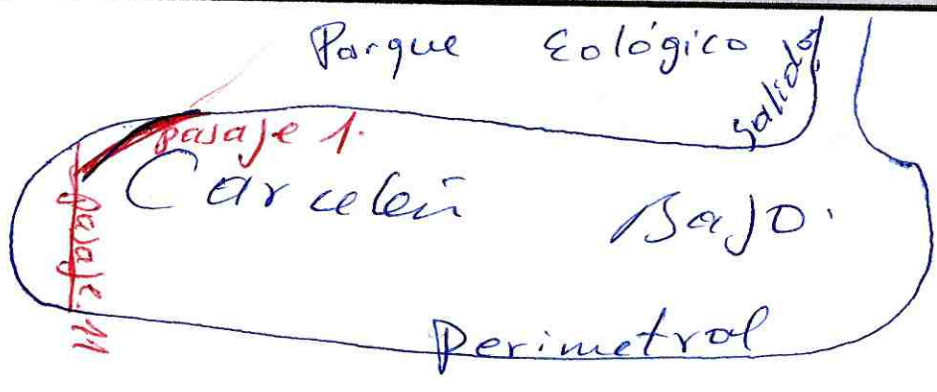 Parque Eológico
Salida
pasaje 1.
Carcelén Bajo.
pasaje. 11
Perimetral